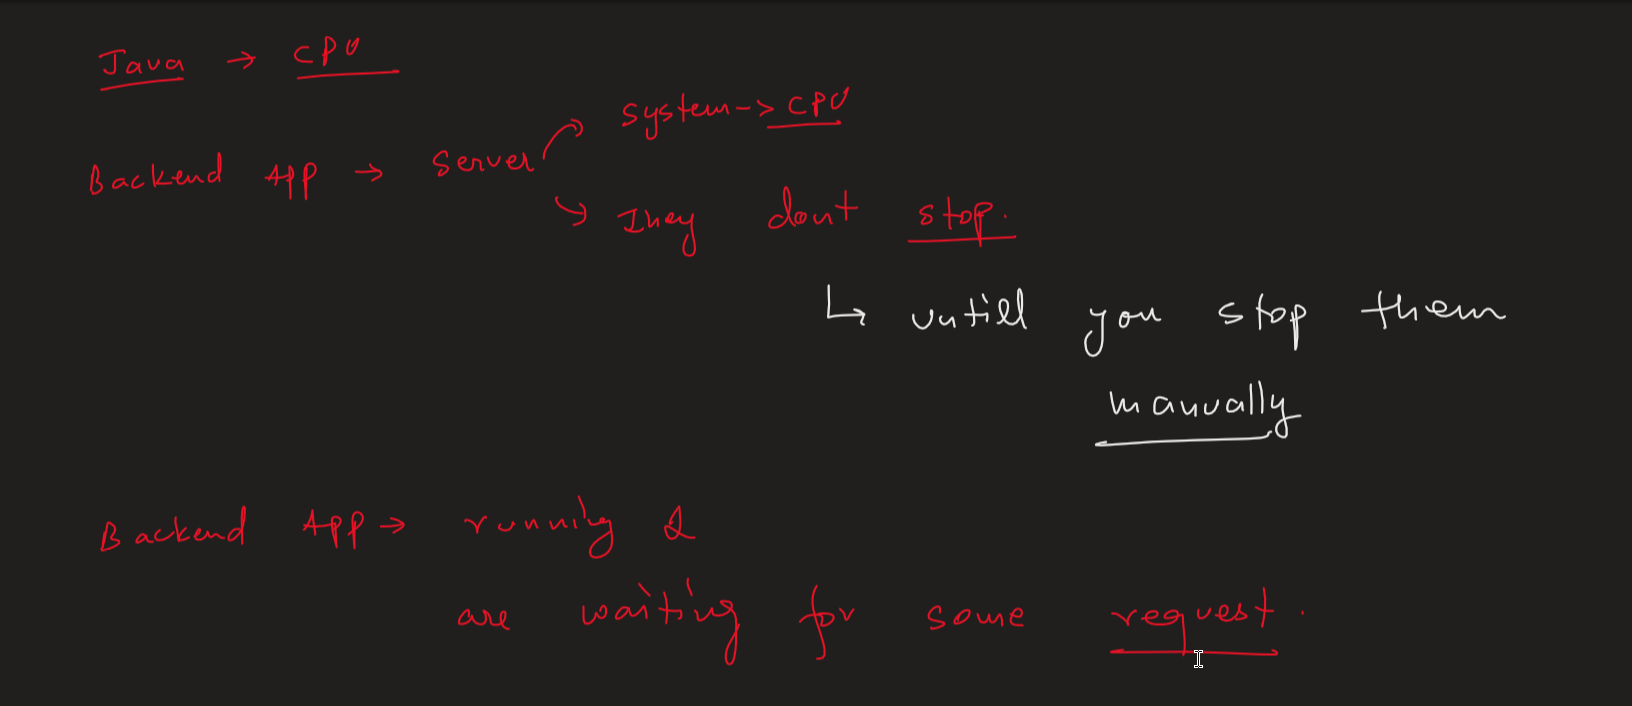 Java → CPU
System -> CPU
Backend App → Server
They dont stop.
↳ untill you stop them
manually
Backend App → running &
are waiting for some request.